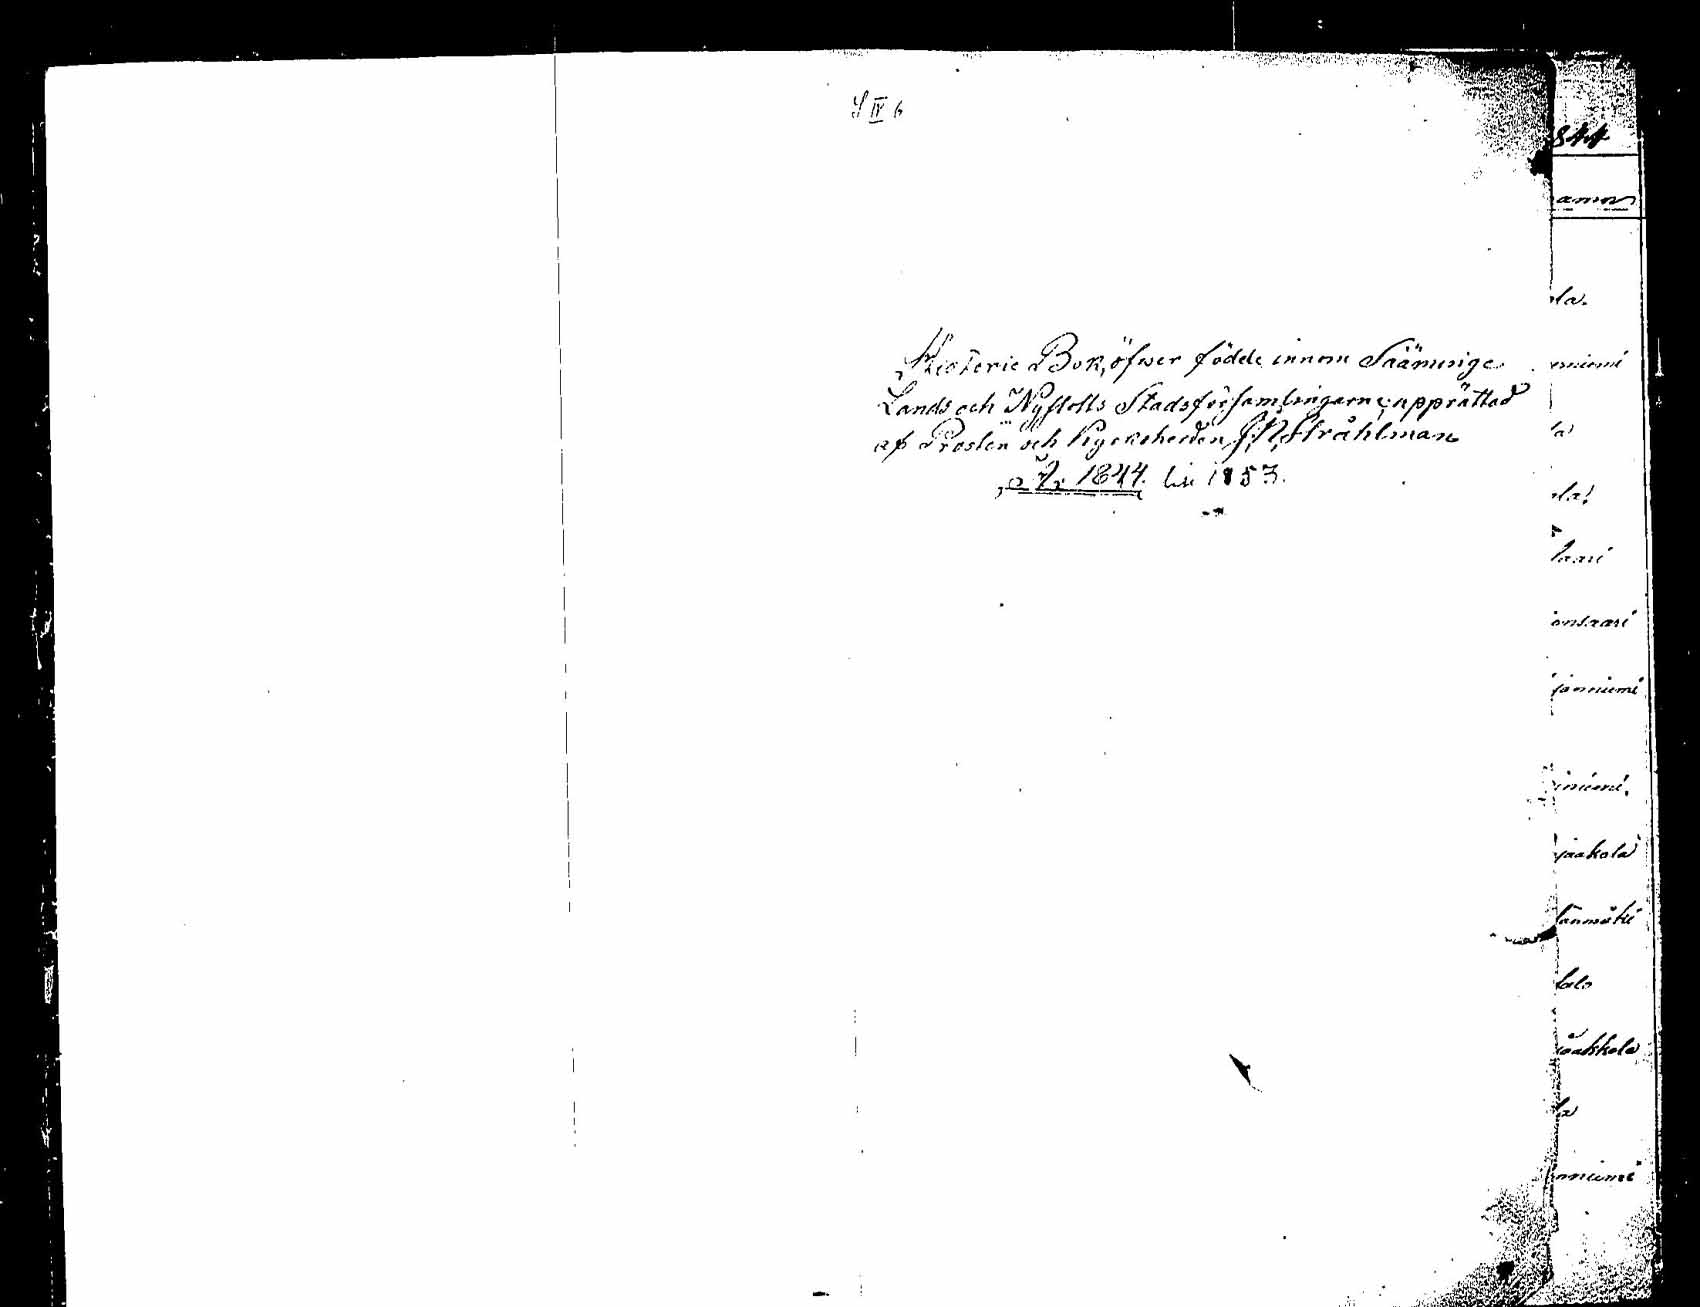 IV 6
Historie Bok, öfwer födde innom Sääminge
Lands och Nyslotts Stadsförsamlingarne; upprättad
af Prosten och Kyrkoherden J. N. Stråhlman
År 1844. till 1853.
844
la.
niemi
la
la.
saari
onsaari
janniemi
iniemi.
jaakola
anmäki
talo
jaakkola
la
nniemi